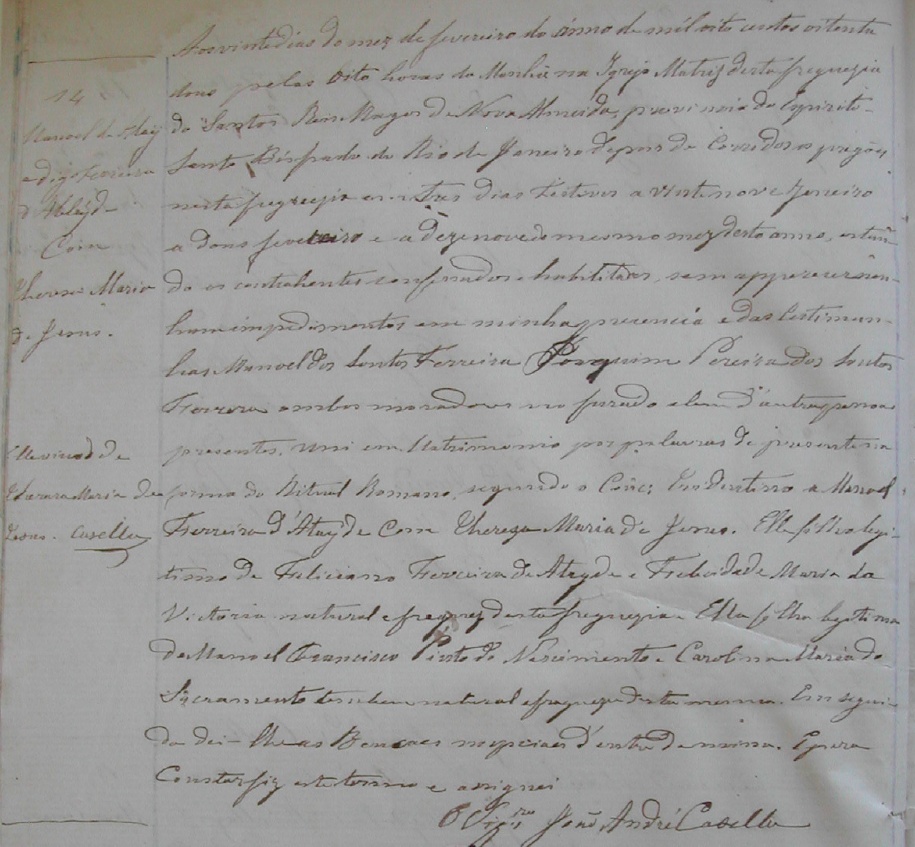 14
Manoel de Atay
e digo Ferreira
d'Atayde
Com
Thereza Maria
de Jesus.
Elle viuvo de
Maria de
Jesus. Casella
Aos vinte dias do mez de fevereiro do anno de mil oito centos oitenta
dous pelas oito horas da Manhã na Igreja Matriz desta freguezia
do Santos Reis Magos de Nova Almeida, provincia do Espirito
Santo Bispado do Rio de Janeiro depois de Corridos os pregões
nesta freguezia em tres dias festivos a vinte nove Janeiro
a dous fevereiro e a dezenove do mesmo mez deste anno, estan
do os contrahentes confessados e habilitados, sem apparecer nen
hum impedimentos em minha presencia e das testimun
has Manoel dos Santos Ferreira Joaquim Pereira dos Santos
Ferrera ambos moradores no e alem d'outras pessoas
presentes, uni em Matrimonio por palavras de presente na
forma do Ritual Romano, segundo o Conc: Tridentino a Manoel
Ferreira d'Atayde Com Thereza Maria de Jesus. Elle filho legi
timo de Feliciano Ferreira de Atayde e Felicidade Maria da
Victoria natural e freguez desta freguezia e Ella filha legitima
de Manoel Francisco Pinto do Nascimento e Carolina Maria do
Sacramento tambem natural e fregueza desta mesma. Em segui
da dei-lhe as Bencoes nupciaes d'entro da missa. E para
Constar fiz este termo e assignei
O Vigr.ro João André Casella